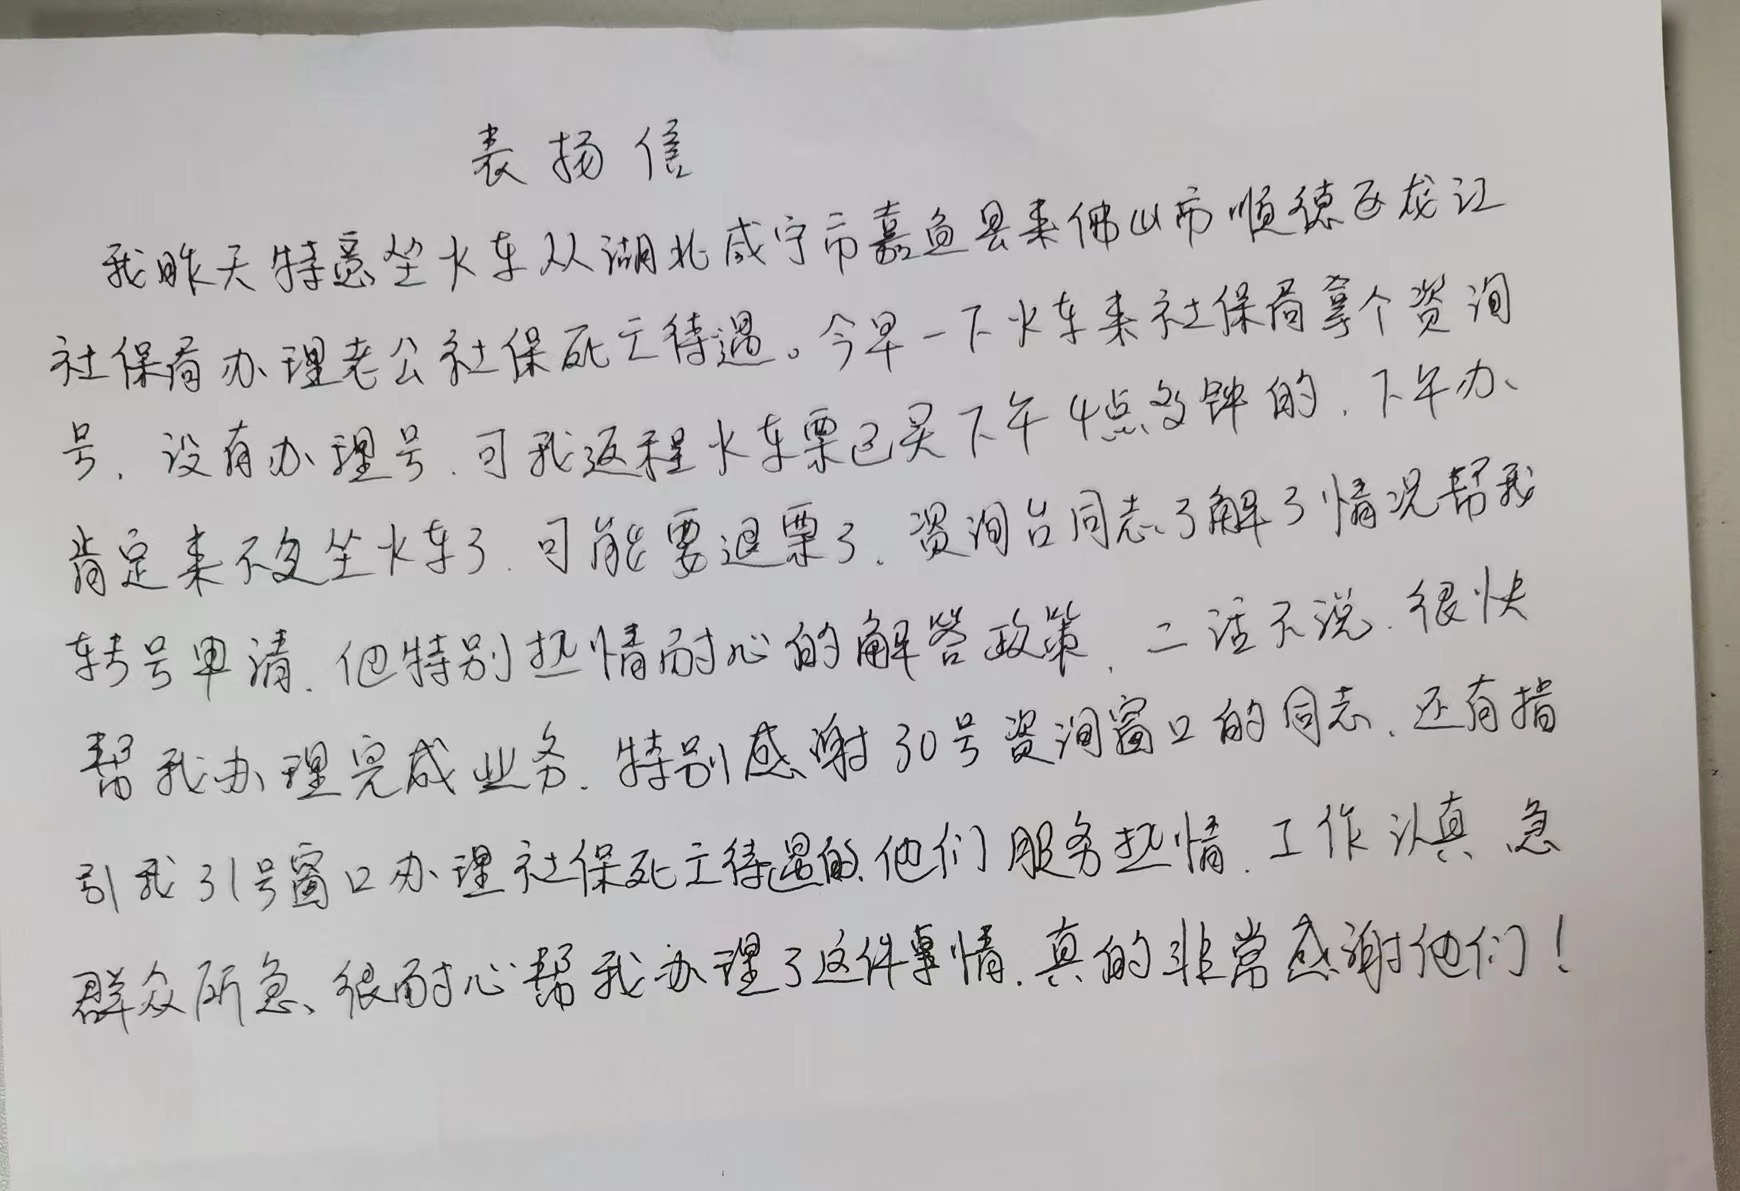 表扬信
我昨天特意坐火车从湖北咸宁市嘉鱼县来佛山市顺德区龙江
社保局办理老公社保死亡待遇。今早一下火车来社保局拿个资询
号，没有办理号，可我返程火车票已买下午4点多钟的，下午办、
肯定来不及坐火车了，可能要退票了，资询台同志了解了情况帮我
转号申请，他特别热情耐心的解答政策，二话不说，很快
帮我办理完成业务，特别感谢30号资询窗口的同志，还有指
引我31号窗口办理社保死亡待遇的，他们服务热情，工作认真，急
群众所急、很耐心帮我办理了这件事情，真的非常感谢他们！